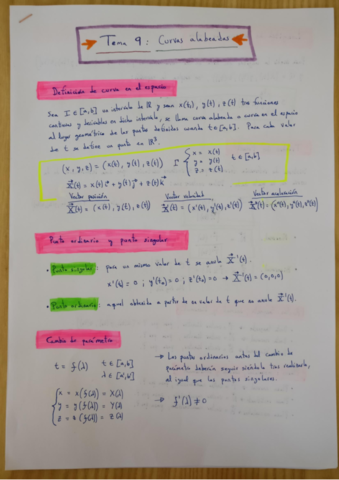 Tema 9: Curvas alabeadas
Definición de curva en el espacio
Sea I ∈ [a,b] un intervalo de ℝ y sean x(t), y(t), z(t) tres funciones
continuas y derivables en dicho intervalo, se llama curva alabeada o curva en el espacio
al lugar geométrico de los puntos definidos cuando t ∈ [a,b]. Para cada valor
de t se define un punto en ℝ³.
(x, y, z) = (x(t), y(t), z(t)) Γ { x = x(t) y = y(t) z = z(t) t ∈ [a,b]
X(t) = x(t) i + y(t) j + z(t) k
Vector posición Vector velocidad Vector aceleración
X(t) = (x(t), y(t), z(t)) X'(t) = (x'(t), y'(t), z'(t)) X''(t) = (x''(t), y''(t), z''(t))
Punto ordinario y punto singular
• Punto singular: para un mismo valor de t se anula X'(t).
x'(t₀) = 0 ; y'(t₀) = 0 ; z'(t₀) = 0 → X'(t) = (0,0,0)
• Punto ordinario: aquel obtenido a partir de un valor de t que no anula X'(t).
Cambio de parámetro
t = f(λ) t ∈ [a,b]
λ ∈ [a',b']
→ Los puntos ordinarios antes del cambio de
parámetro deberán seguir siéndolo tras realizarlo,
al igual que los puntos singulares.
{ x = x(f(λ)) = X(λ)
y = y(f(λ)) = Y(λ)
z = z(f(λ)) = Z(λ)
→ f'(λ) ≠ 0